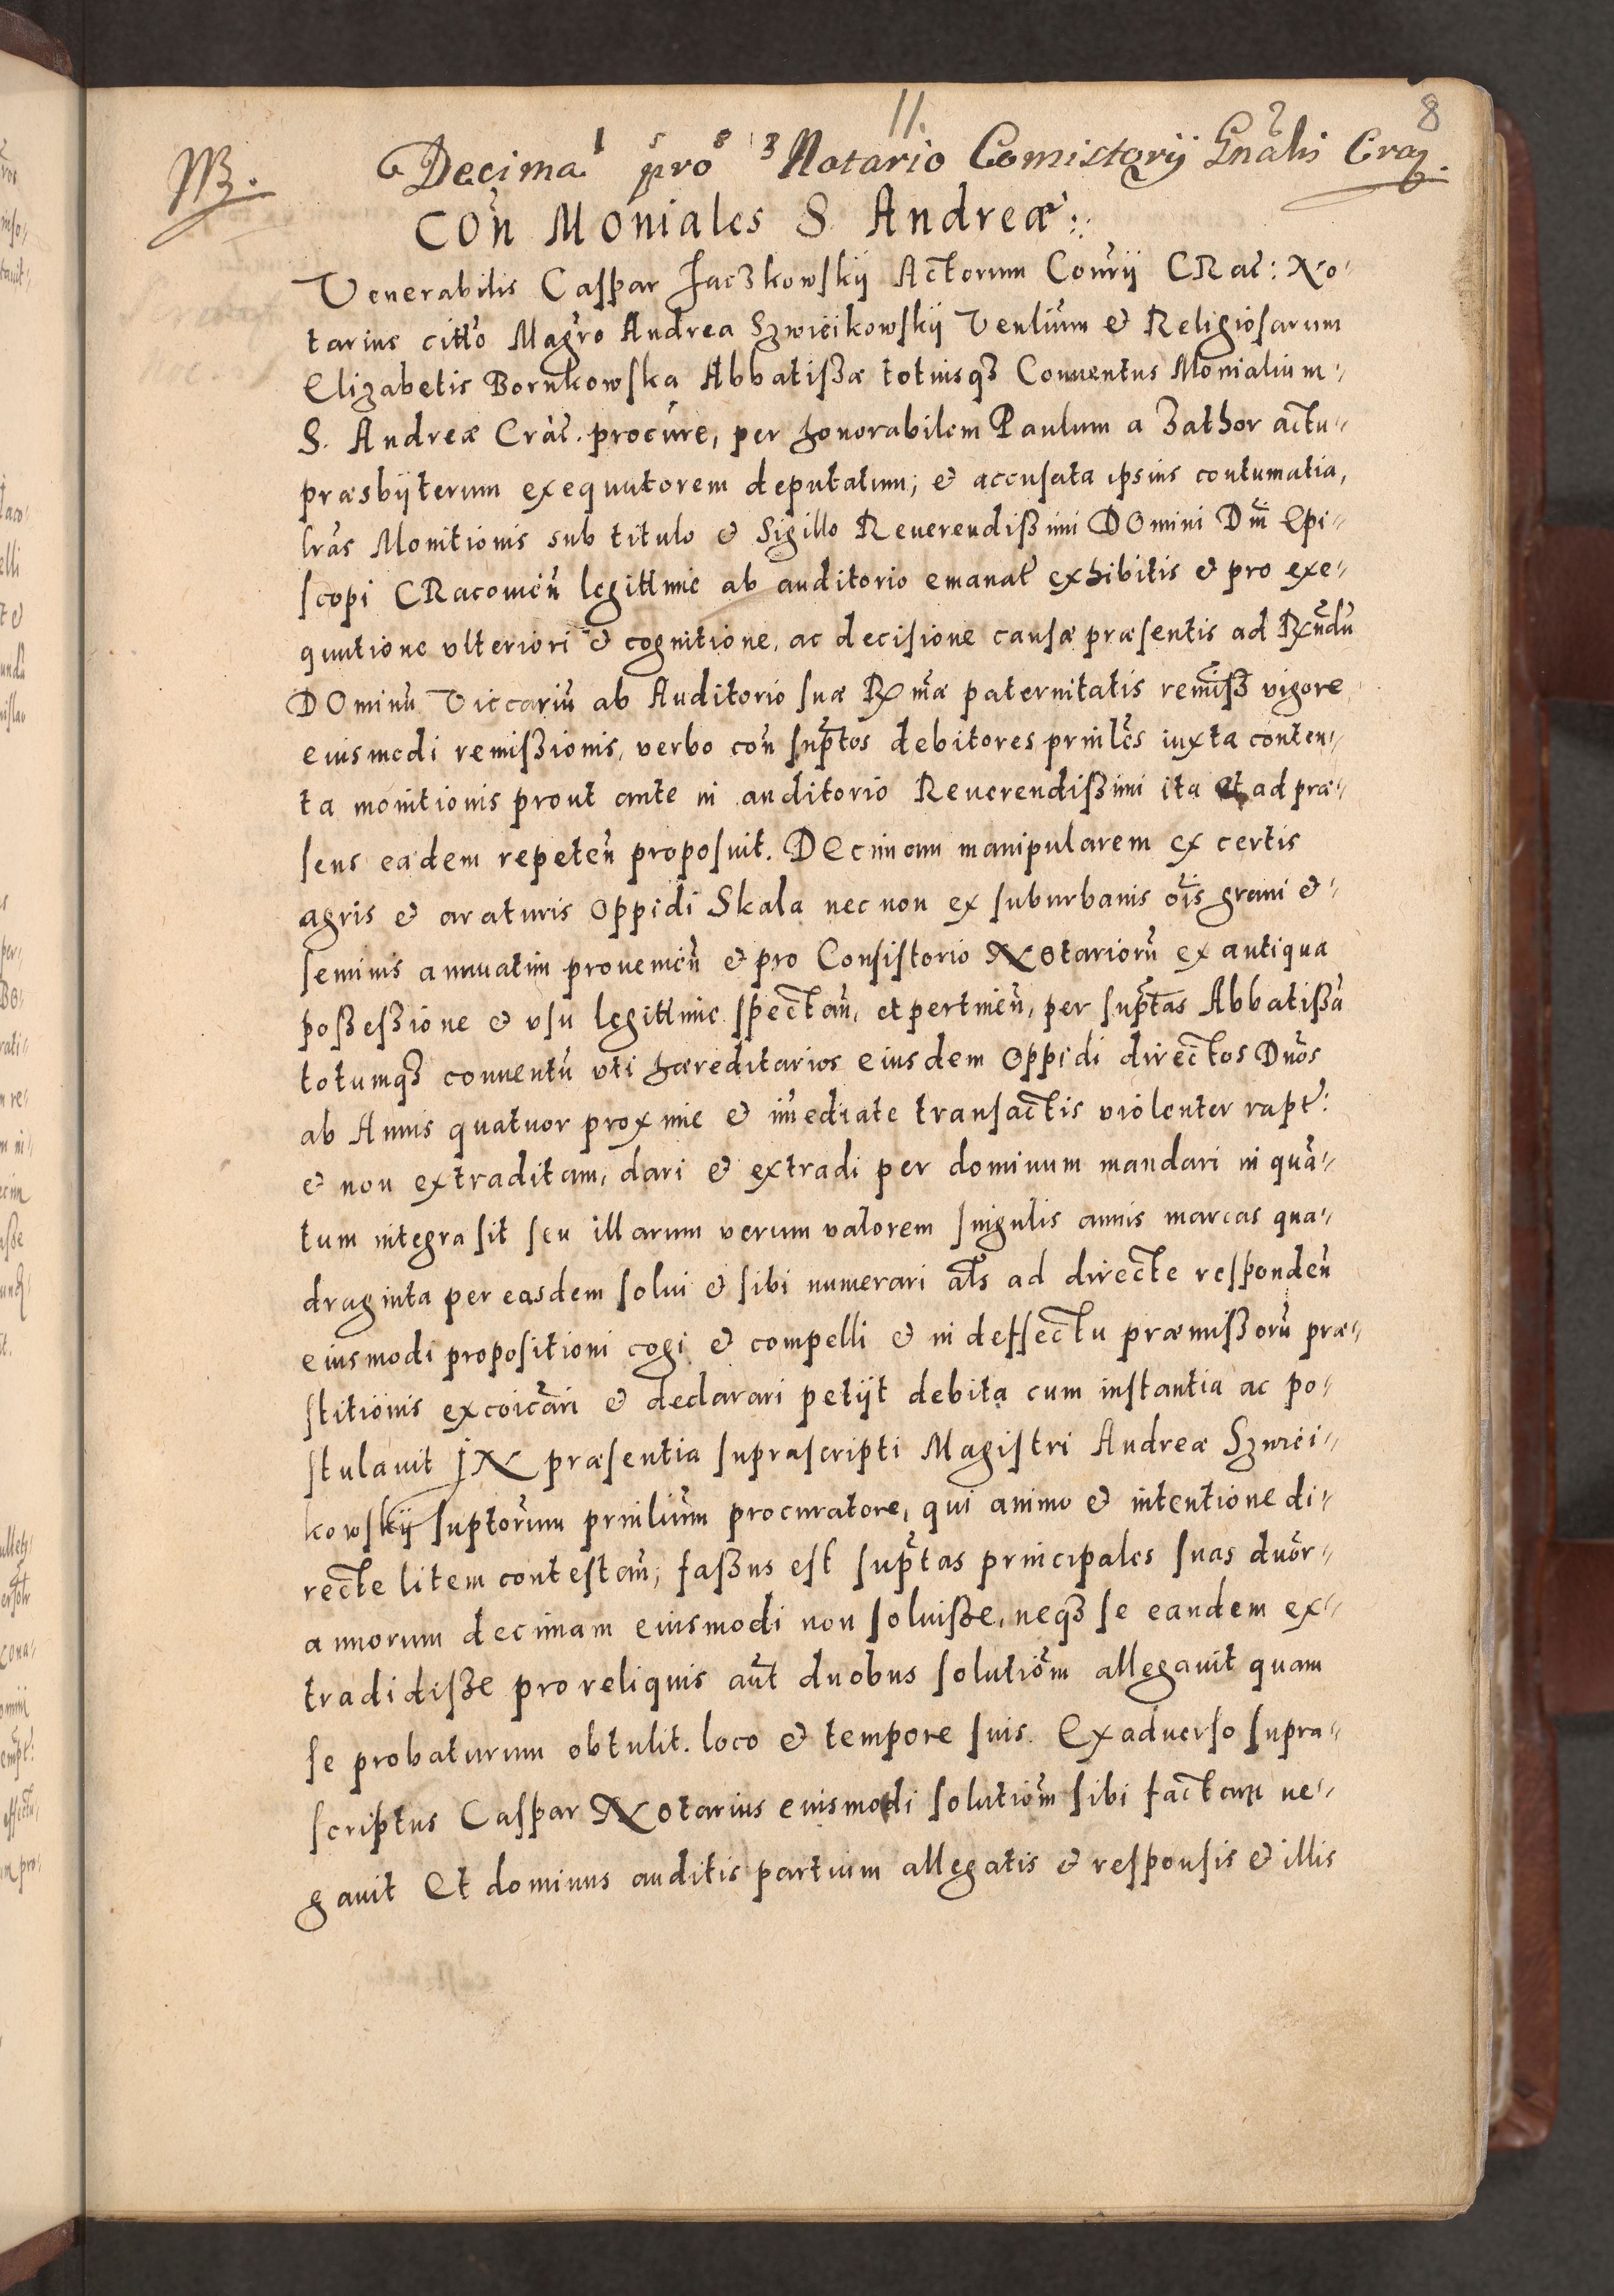 11.
8
NB. Decima pro Notario Comistorÿ Gnãlis Crac.
1 5 8 3
COn Moniales S. Andreæ:
Venerabilis Caspar Jaczkowskÿ Actorum Conrÿ CRac: No-
tarius citto Magro Andrea Szwieikowskÿ Venlium & Religiosarum
Elizabetis Bornkowska Abbatißæ totiusq3 Conuentus Monialium
S. Andreæ Crac. procure, per honorabilem Paulum a Zathor actu-
præsbÿterum exequutorem deputatum; & accusata ipsius contumatia,
lras Monitionis sub titulo & Sigillo Reuerendißimi DOmini Dm̃ Epi-
scopi CRacouien̄ legittime ab auditorio emanat exhibitis & pro exe-
quutione vlteriori & cognitione, ac decisione causæ præsentis ad Rndũ
DOminũ Viccariũ ab Auditorio suæ Rmæ paternitatis remiß vigore
eiusmodi remißionis, verbo con̄ suptos debitores prnles iuxta conten-
ta monitionis prout ante in auditorio Reuerendißimi ita et ad præ-
sens eadem repeten̄ proposuit. DEcimam manipularem ex certis
agris & araturis Oppidi Skala nec non ex suburbanis ois grani &
seminis annuatim prouenien̄ & pro Consistorio NOtariorũ ex antiqua
poßeßione & vsu legittime spectan̄, et pertinen̄, per suptas Abbatißã
totumq3 conuentũ vti hæreditarios eiusdem Oppidi directos Dnos
ab Annis quatuor proxime & im̃ediate transactis violenter rapt:
& non extraditam, dari & extradi per dominum mandari in quã-
tum integra sit seu illarum verum valorem singulis annis marcas qua-
draginta per easdem solui & sibi numerari als ad directe responden̄
eiusmodi propositioni cogi & compelli & in deffectu præmißorũ præ-
stitionis excoicari & declarari petÿt debita cum instantia ac po-
stulauit IN præsentia suprascripti Magistri Andreæ Szwiei-
kowskÿ suptorum prnlium procuratore, qui animo & intentione di-
recte litem contestan̄; faßus est suptas principales suas duor-
annorum decimam eiusmodi non soluiße, neq3 se eandem ex-
tradidiße pro reliquis aut̃ duobus solutiom̃ allegauit quam
se probaturum obtulit. loco & tempore suis. Ex aduerso supra-
scriptus Caspar NOtarius eiusmodi solutiom̃ sibi factam ne-
gauit Et dominus auditis partium allegatis & responsis & illis